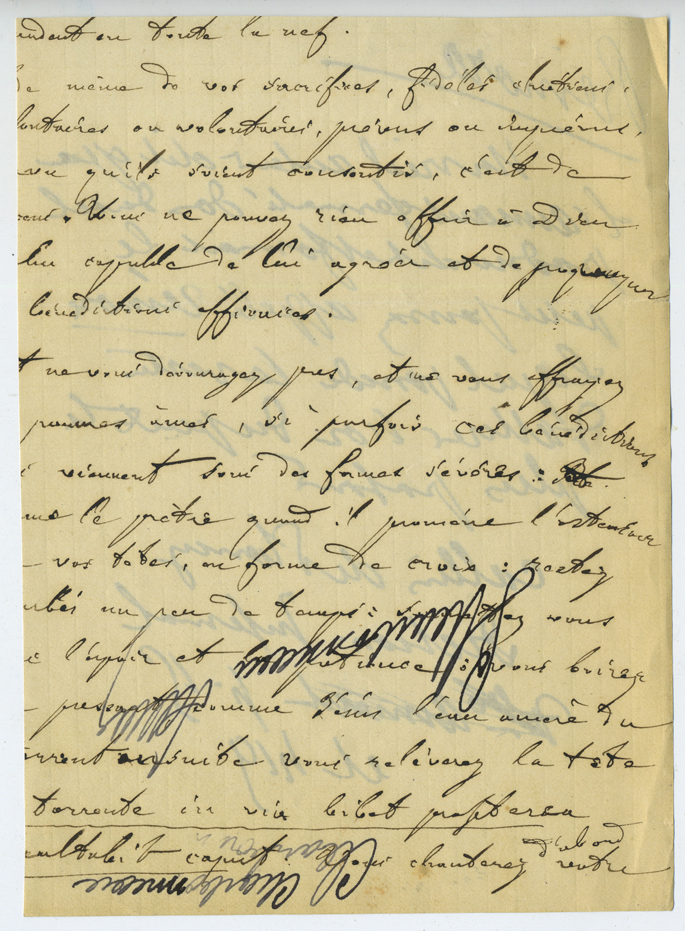 ndent en toute la nef.
de même de vos sacrifices, fidèles chrétiens,
lontaires ou volontaires, prévus ou imprévus,
vu qu'ils soient consentis, c'est de
cens. Vous ne pouvez rien offrir à Dieu
plus capable de lui agréer et de
bénédictions efficaces.
t ne vous découragez pas, et ne vous effrayez
pauvres âmes, si parfois ces bénédictions
viennent sous des formes sévères :
me le prêtre quand il promène l'ostensoir
vos têtes, en forme de croix : restez
bés un peu de temps : vous
l'espoir et patience : vous boirez
passant comme Jésus l'eau amère du
rrent ensuite vous relèverez la tête
torrente in via bibet propterea
exaltabit caput : Vous chanterez d'abord votre
Charlemagne